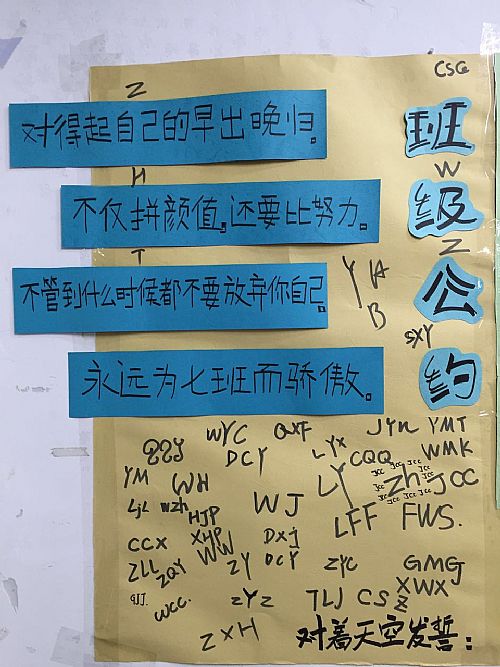 CSG
Z
对得起自己的早出晚归。
班级公约
H
W
不仅拼颜值，还要比努力。
Z
T
YAB
不管到什么时候都不要放弃你自己。
SXY
永远为七班而骄傲。
WYC
QXF
JYN
YMT
QQY
DCY
LYX
CQQ
WMK
YM
WH
LY
zh
JOC
JCC
JCC
JCC
JCC
JCC
JCC
JCC
LjL
wzh
HJP
WJ
LFF
FWS.
CCX
XHP
WW
DXj
DCY
ZLL
ZQY
ZY
ZYC
GMGJ
XWX
GJJ.
WCC.
ZYZ
TLJ
CSZ
ZXH
对着天空发誓：